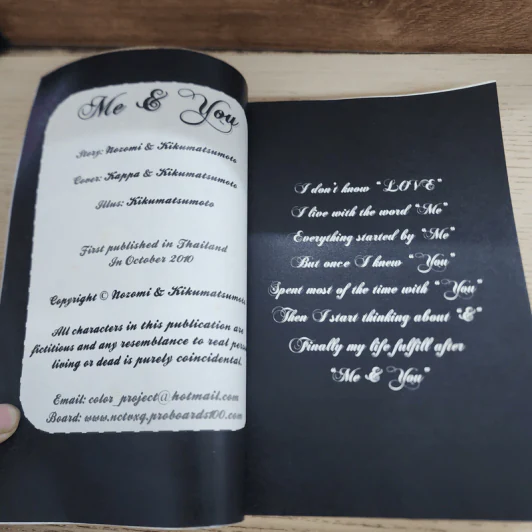 Me & You
Story: Nozomi & Kikumatsumoto
Cover: Kappa & Kikumatsumoto
Illus: Kikumatsumoto
First published in Thailand
In October 2010
Copyright © Nozomi & Kikumatsumoto
All characters in this publication are
fictitious and any resemblance to real
living or dead is purely coincidental.
Email: color_project@hotmail.com
Board: www.nctvxq.proboards100.com
I don't know "LOVE"
I live with the word "Me"
Everything started by "Me"
But once I knew "You"
Spent most of the time with "You"
Then I start thinking about "&"
Finally my life fulfill after
"Me & You"